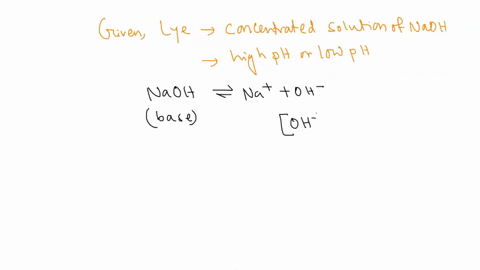 Given, Lye → concentrated solution of NaOH
→ high pH or low pH
NaOH ⇌ Na⁺ + OH⁻
(base) [OH⁻